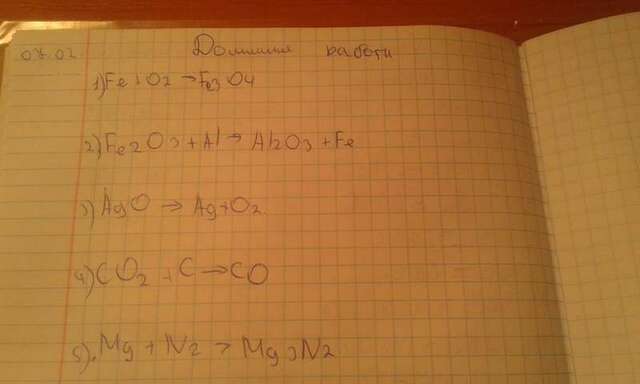 07.02 Домашня работа
1) Fe + O2 → Fe3O4
2) Fe2O3 + Al → Al2O3 + Fe
3) AgO → Ag + O2
4) CO2 + C → CO
5). Mg + N2 → Mg3N2